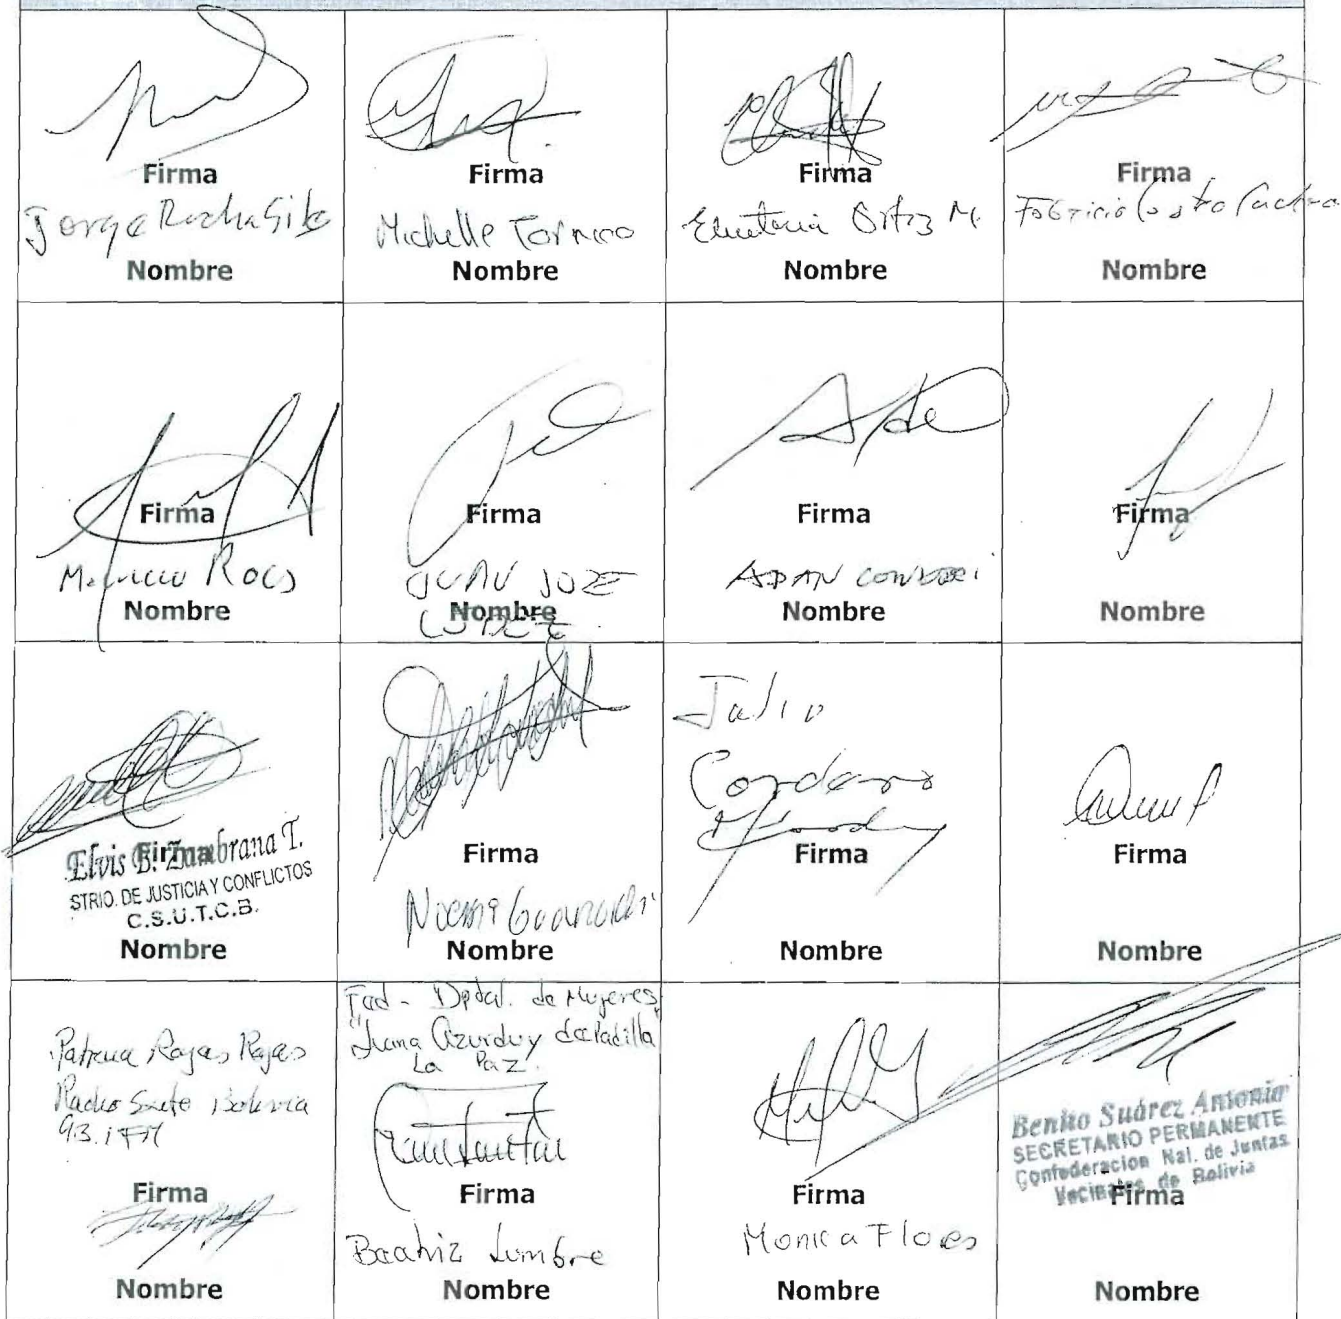 Firma
Jorge Rocha Gile
Nombre
Firma
Michelle Torrico
Nombre
Firma
Eleuteria Ortiz M.
Nombre
Firma
Fabricio Costa
Nombre
Firma
Mauricio
Nombre
Firma
JUAN JOZE
LOPEZ
Nombre
Firma
ADAN CONDORI
Nombre
Firma
Nombre
Elvis B. Zambrana T.
Firma
STRIO. DE JUSTICIA Y CONFLICTOS
C.S.U.T.C.B.
Nombre
Firma
Noemi
Nombre
Julio
Cordero
Firma
Nombre
Firma
Nombre
Patricia Rojas Rojas
Radio Bolivia
93.1 FM
Firma
Nombre
Fed - Dptal. de Mujeres
"Juana Azurduy de Padilla"
La Paz.
Firma
Beatriz Lumbre
Nombre
Firma
Monica Flores
Nombre
Benito Suárez Antonio
SECRETARIO PERMANENTE
Confederacion Nal. de Juntas
Vecinales de Bolivia
Firma
Nombre